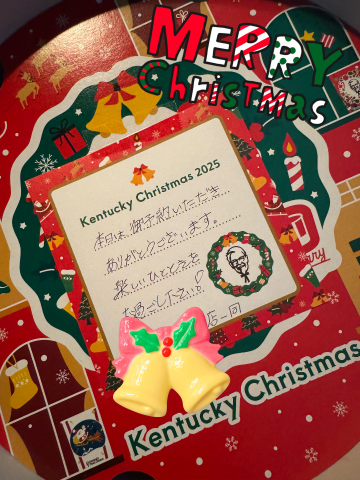 MERRY
Christmas
Kentucky Christmas 2025
本日は御予約いただき
ありがとうございます。
楽しいひとときを
お過ごし下さい!
店一同
Merry
Kentucky Christmas